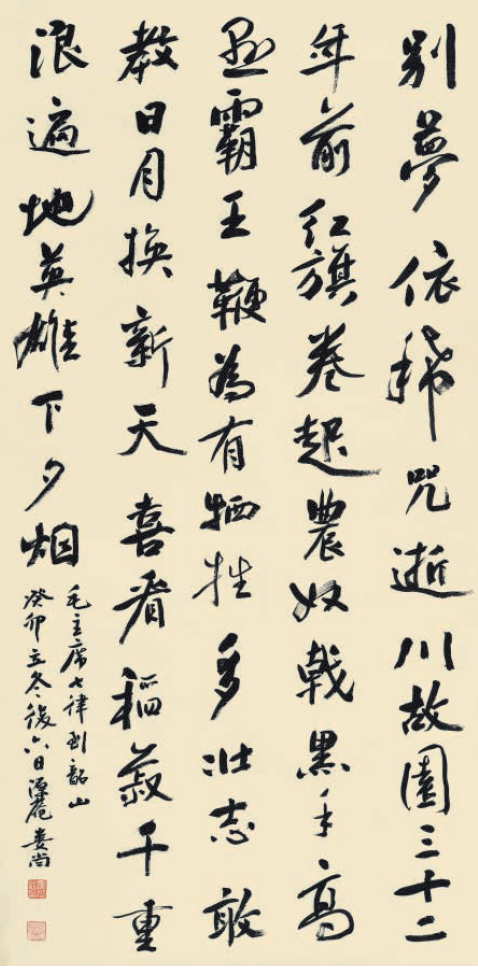 别夢依稀咒逝川故園三十二
年前红旗卷起農奴戟黑手高
悬霸王鞭為有牺牲多壮志敢
教日月换新天喜看稻菽千重
浪遍地英雄下夕烟
毛主席七律到韶山
癸卯立冬後六日